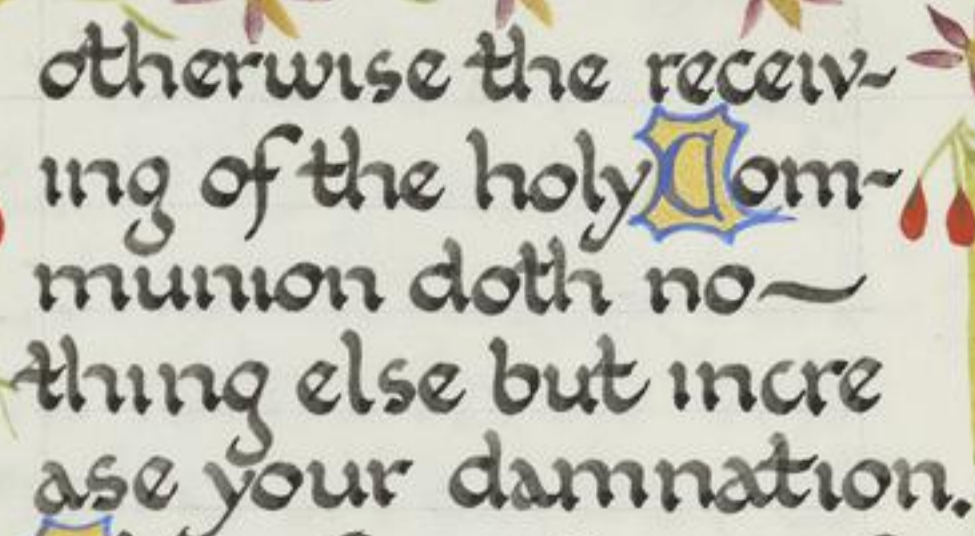 otherwise the receiv-
ing of the holy Com-
munion doth no-
thing else but incre
ase your damnation.